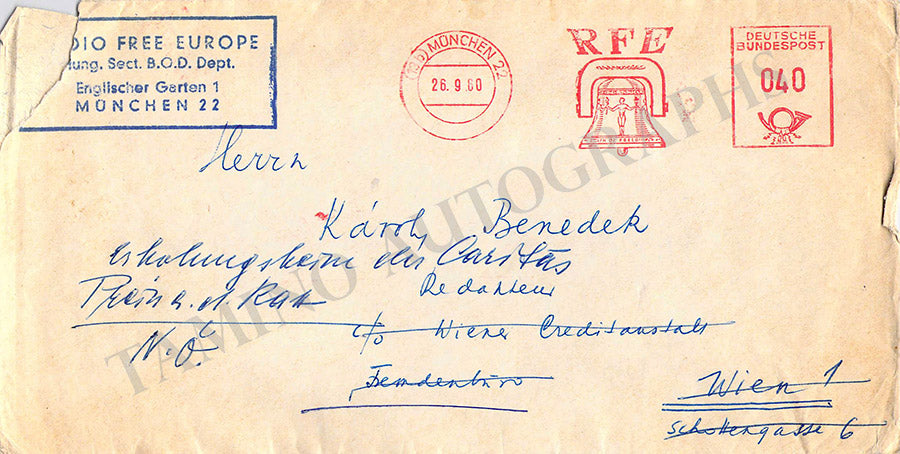 DIO FREE EUROPE
ung. Sect. B.O.D. Dept.
Englischer Garten 1
MÜNCHEN 22
(13b) MÜNCHEN 22
26.9.60
RFE
DEUTSCHE
BUNDESPOST
040
Herrn
Károly Benedek
Erholungsheim der Caritas
Redakteur
Prein a. d. Rax
N.Ö.
c/o Wiener Creditanstalt
Fremdenbüro
Wien 1
Schottengasse 6
TAMINO AUTOGRAPHS